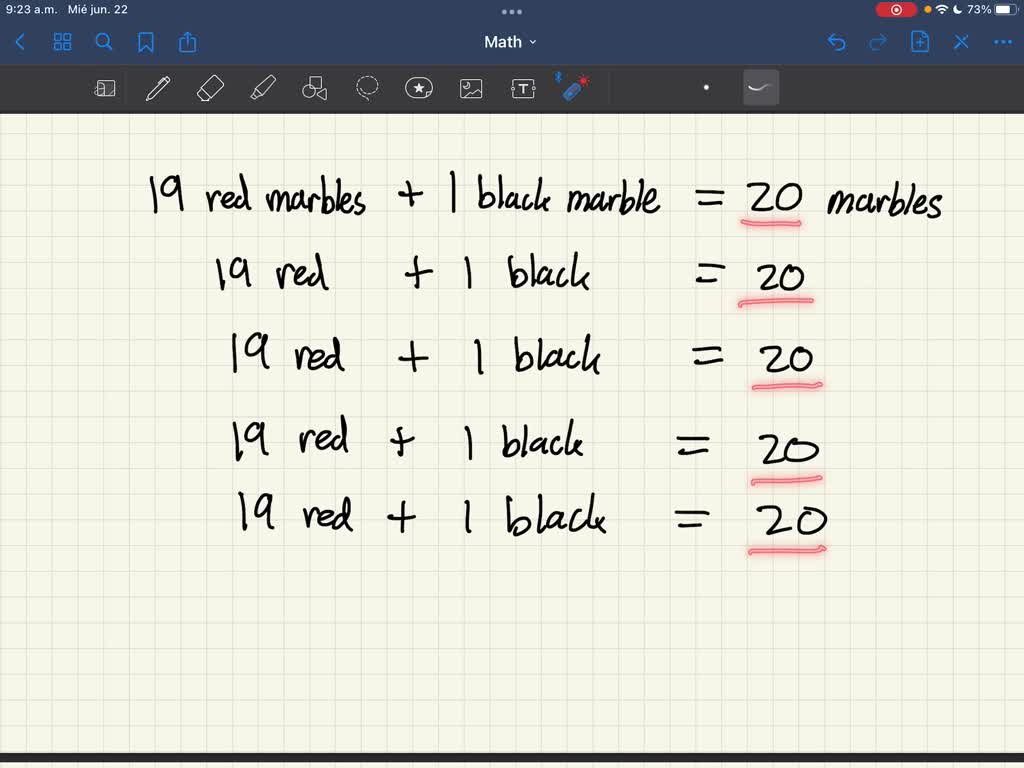 9:23 a.m. Mié jun. 22 73%
Math
T
19 red marbles + 1 black marble = 20 marbles
19 red + 1 black = 20
19 red + 1 black = 20
19 red + 1 black = 20
19 red + 1 black = 20